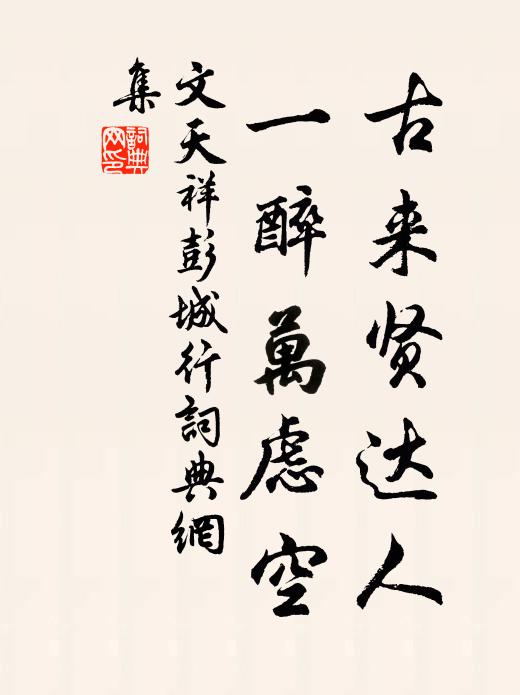 古来贤达人
一醉萬虑空
文天祥彭城行詞典網
集
詞典網印